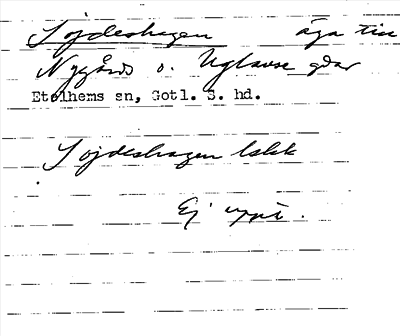 Sojdeshagen äga till
Nygårds o. Uglause gdar
Etelhems sn, Gotl. S. hd.
Sojdeshagen lskk
Ej uppt.